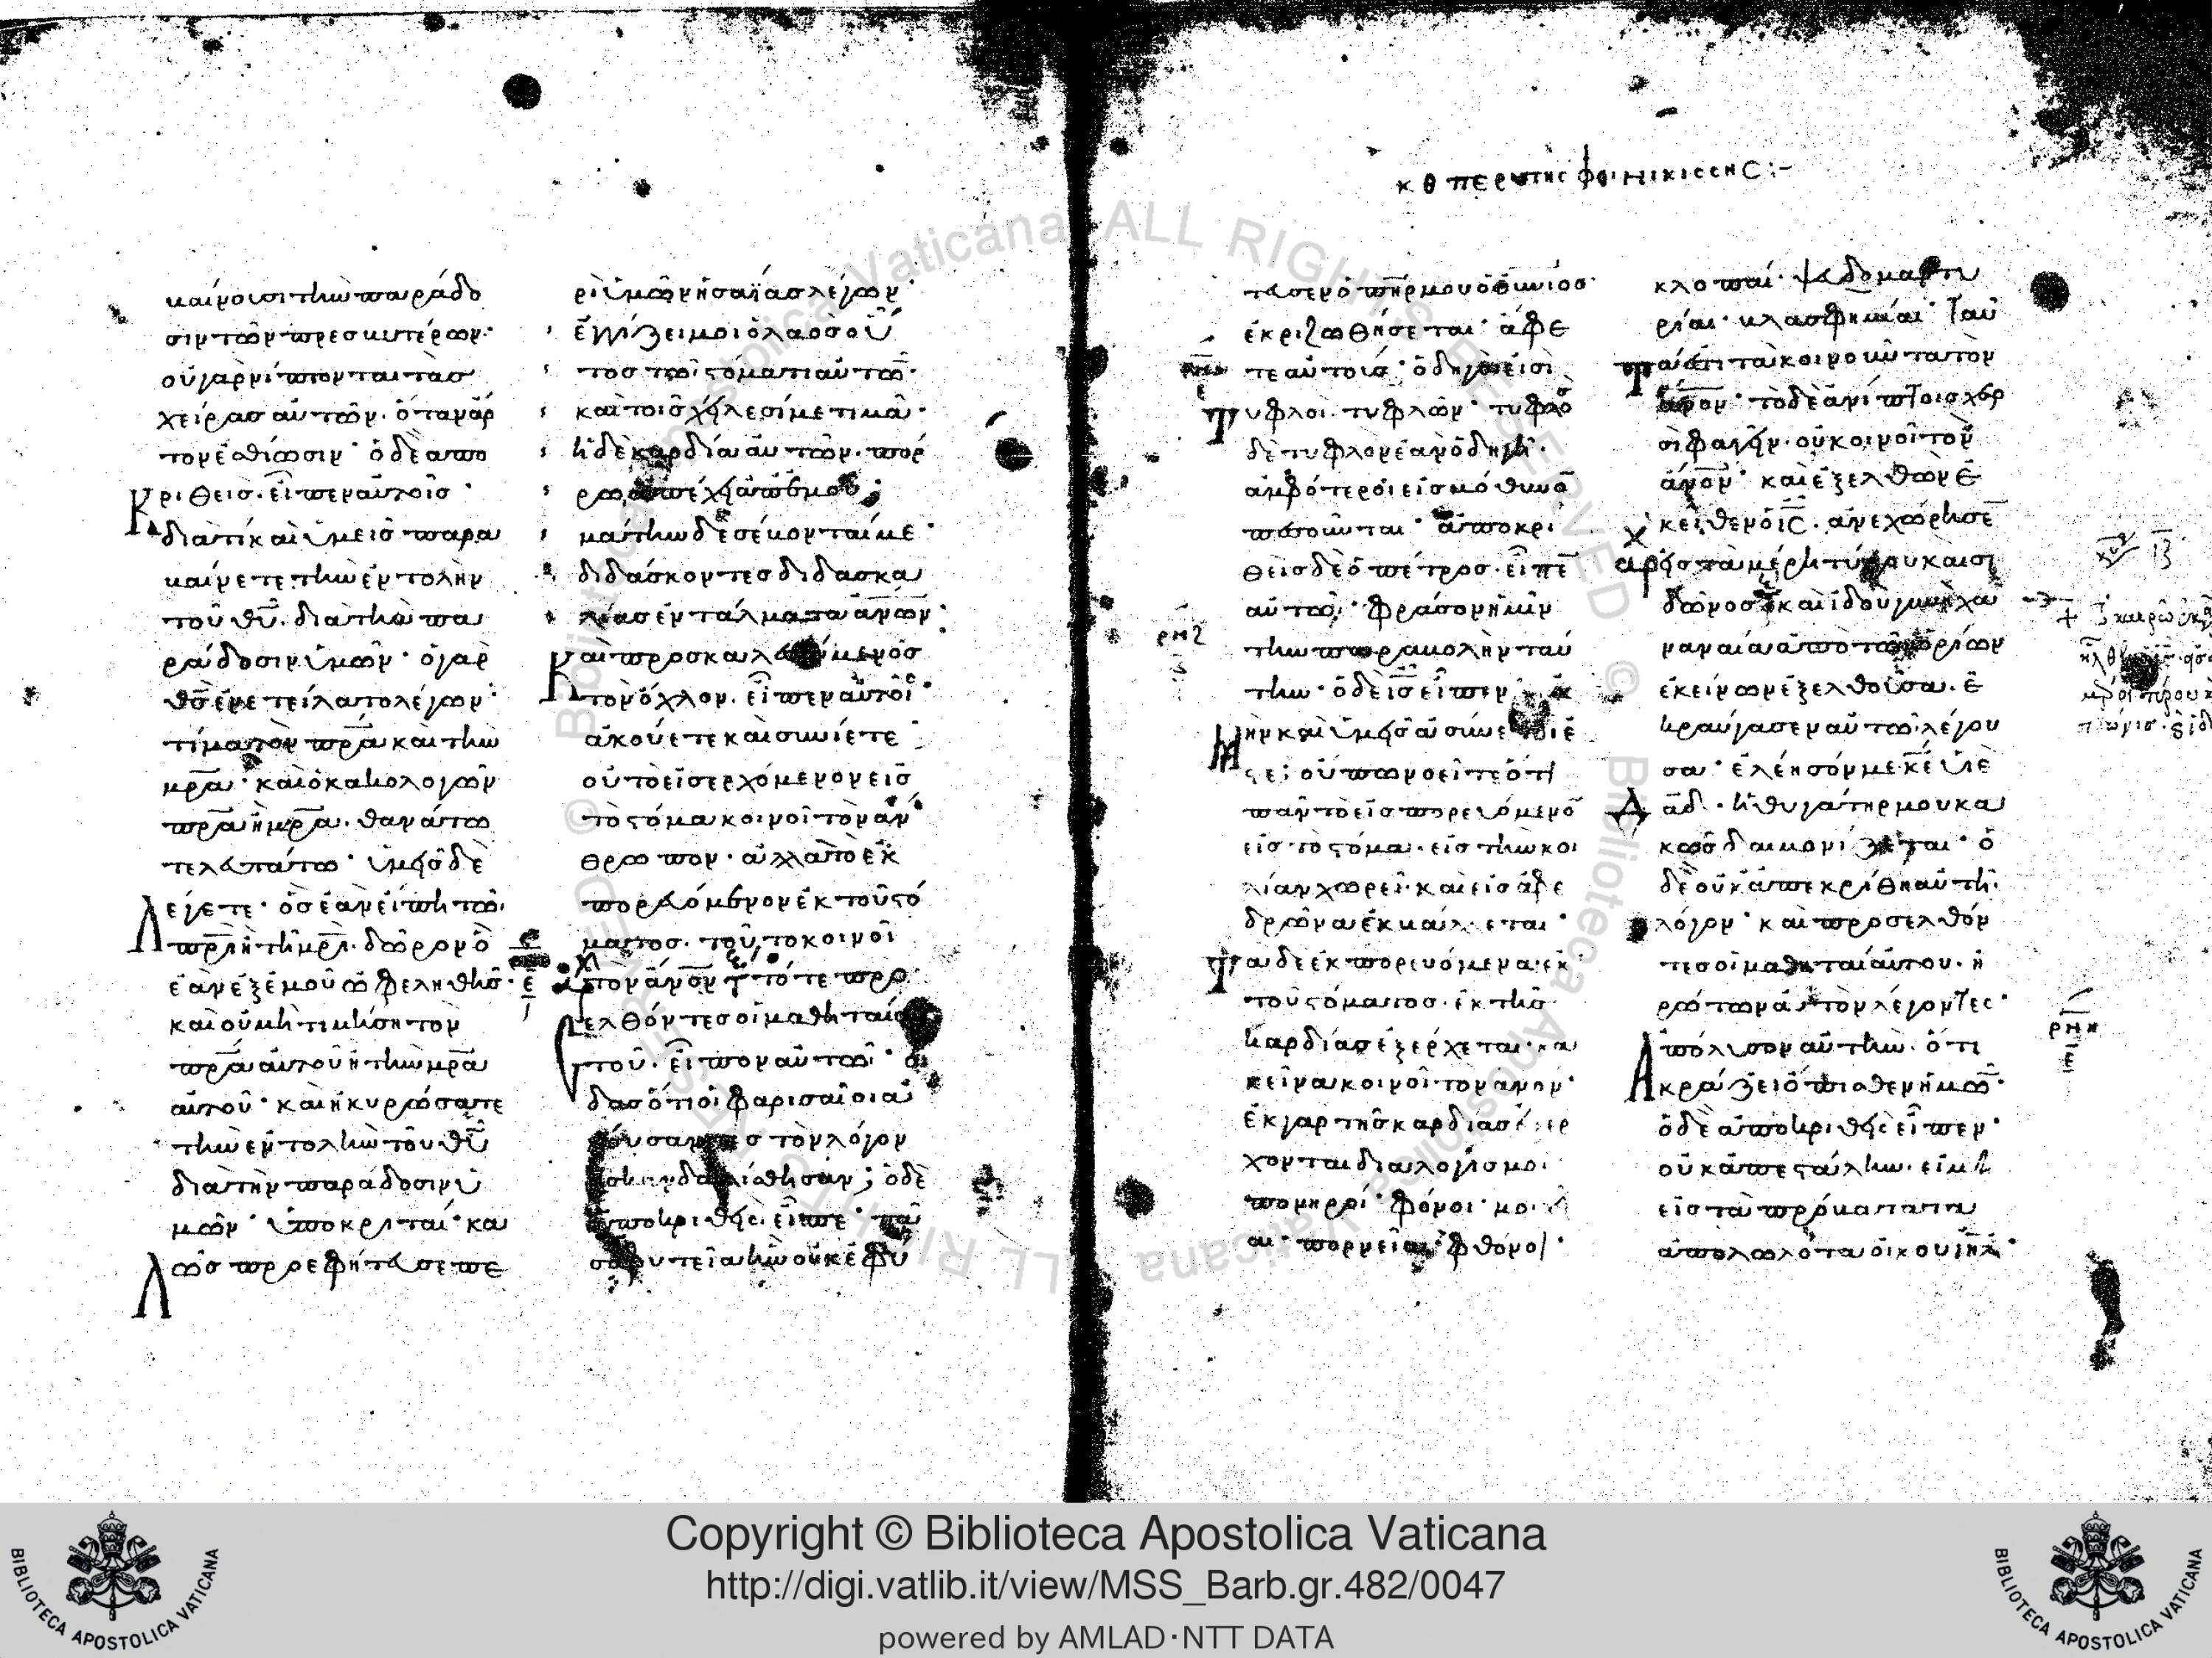 κθ περι της φοινικισσης :-
καίνουσι τὴν παράδο
σιν τῶν πρεσβυτέρων·
οὐ γὰρ νίπτονται τὰσ
χεῖρασ αὐτῶν· ὅταν ἄρ
τον ἐσθίωσιν· ὁ δὲ ἀπο
κριθεὶσ· εἶπεν αὐτοῖσ·
διατί καὶ ὑμεῖσ παρα
βαίνετε τὴν ἐντολὴν
τοῦ θῦ· διὰ τὴν πα
ράδοσιν ὑμῶν· ὁ γὰρ
θσ ἐνετείλατο λέγων·
τίμα τὸν πρα καὶ τὴν
μρα· καὶ ὁ κακολογῶν
πρα ἢ μρα· θανάτω
τελευτάτω· ὑμεῖσ δὲ
λέγετε· ὃσ ἐὰν εἴπη τῶ
πρὶ ἢ τῆ μρὶ· δῶρον ὃ
ἐὰν ἐξ ἐμοῦ ὠφεληθῆσ·
καὶ οὐ μὴ τιμήση τὸν
πρα αὐτοῦ ἢ τὴν μρα
αὐτοῦ· καὶ ἠκυρώσατε
τὴν ἐντολὴν τοῦ θῦ
διὰ τὴν παράδοσιν ὑ
μῶν· ὑποκριταί· κα
λῶσ προεφήτευσε πε
ρὶ ὑμῶν ἡσαΐασ λέγων·
ἐγγίζει μοι ὁ λαὸσ οὗ
τοσ τῶ στόματι αὐτῶ·
καὶ τοῖσ χείλεσί με τιμᾶ·
ἡ δὲ καρδία αὐτῶν· πόρ
ρω ἀπέχει ἀπ' ἐμοῦ;
μάτην δὲ σέβονταί με·
διδάσκοντεσ διδασκα
λίασ ἐντάλματα ἀνων·
καὶ προσκαλεσάμενοσ
τὸν ὄχλον· εἶπεν αὐτοῖ·
ἀκούετε καὶ συνίετε
οὐ τὸ εἰσερχόμενον εἰσ
τὸ στόμα κοινοῖ τὸν ἄν
θρωπον· ἀλλὰ τὸ ἐκ
πορευόμενον ἐκ τοῦ στό
ματοσ· τοῦτο κοινοῖ
τὸν ἄνον τότε προ
σελθόντεσ οἱ μαθηταὶ αὐ
τοῦ· εἶπον αὐτῶ· οἶ
δασ ὅτι οἱ φαρισαῖοι ἀ
κούσαντεσ τὸν λόγον
ἐσκανδαλίσθησαν; ὁ δὲ
ἀποκριθεὶσ εἶπε· πᾶ
σα φυτεία ἣν οὐκ ἐφύ
τευσεν ὁ πηρ μου ὁ οὐνιοσ·
ἐκριζωθήσεται· ἄφε
τε αὐτούσ· ὁδηγοί εἰσι
τυφλοὶ τυφλῶν· τυφλὸ
δὲ τυφλὸν ἐὰν ὁδηγῆ·
ἀμφότεροι εἰσ βόθυνο
πεσοῦνται· ἀποκρι
θεὶσ δὲ ὁ πέτροσ· εἶπε
αὐτῶ· φράσον ἡμῖν
τὴν παραβολὴν ταύ
την· ὁ δὲ ισ εἶπεν· ἀκ
μὴν καὶ ὑμεῖσ ἀσύνετοί ἐ
στε; οὔπω νοεῖτε ὅτι
πᾶν τὸ εἰσπορευόμενο
εἰσ τὸ στόμα· εἰσ τὴν κοι
λίαν χωρεῖ· καὶ εἰσ ἀφε
δρῶνα ἐκβάλλεται·
τὰ δὲ ἐκπορευόμενα ἐκ
τοῦ στόματοσ· ἐκ τῆσ
καρδίασ ἐξέρχεται· κα
κεῖνα κοινοῖ τὸν ἄνον·
ἐκ γὰρ τῆσ καρδίασ ἐξερ
χονται διαλογισμοὶ
πονηροί· φόνοι· μοιχεῖ
αι· πορνεῖαι· φθόνοι·
κλοπαί· ψευδομαρτυ
ρίαι· βλασφημίαι· ταῦ
τά ἐστι τὰ κοινοῦντα τὸν
ἄνον· τὸ δὲ ἀνίπτοισ χερ
σὶ φαγεῖν· οὐ κοινοῖ τὸν
ἄνον· καὶ ἐξελθὼν ἐ
κεῖθεν ὁ ις· ἀνεχώρησε
εἰσ τὰ μέρη τύρου καὶ σι
δῶνοσ· καὶ ἰδοὺ γυνὴ χα
ναναία ἀπὸ τῶν ὁρίων
ἐκείνων ἐξελθοῦσα· ἐ
κραύγασεν αὐτῶ λέγου
σα· ἐλέησόν με κε υἱὲ
δαδ· ἡ θυγάτηρ μου κα
κῶσ δαιμονίζεται· ὁ
δὲ οὐκ ἀπεκρίθη αὐτῆ
λόγον· καὶ προσελθόν
τεσ οἱ μαθηταὶ αὐτοῦ· ἠ
ρώτων αὐτὸν λέγοντεσ·
ἀπόλυσον αὐτὴν· ὅτι
κράζει ὄπισθεν ἡμῶ·
ὁ δὲ ἀποκριθεὶσ εἶπεν·
οὐκ ἀπεστάλην· εἰ μὴ
εἰσ τὰ πρόβατα τὰ
ἀπολωλότα οἴκου ιηλ·
ρμζ
ρμη
Copyright © Biblioteca Apostolica Vaticana
http://digi.vatlib.it/view/MSS_Barb.gr.482/0047
powered by AMLAD·NTT DATA
BIBLIOTECA APOSTOLICA VATICANA
BIBLIOTECA APOSTOLICA VATICANA